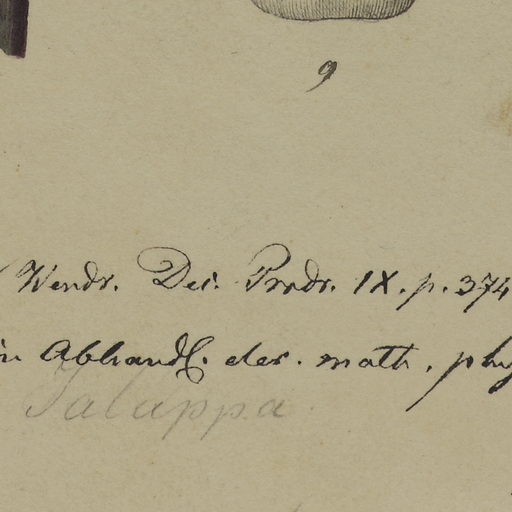 9
Wendr. Dec. Prodr. IX. p. 374
in Abhandl. der. math. phy
Jalappa